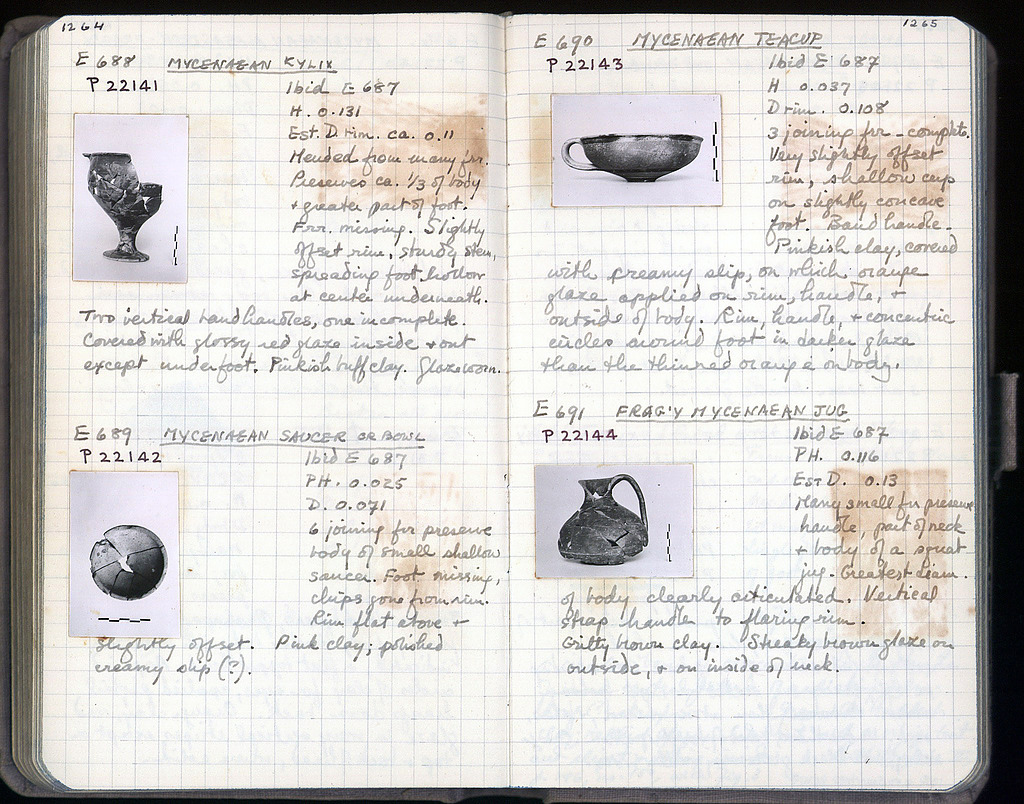 1264
E 688 MYCENAEAN KYLIX
P 22141
Ibid E 687
H. 0.131
Est. D rim. ca. 0.11
Mended from many frr.
Preserves ca. 1/3 of body
+ greater part of foot.
Frr. missing. Slightly
offset rim, sturdy stem,
spreading foot hollow
at center underneath.
Two vertical band handles, one incomplete.
Covered with glossy red glaze inside + out
except underfoot. Pinkish buff clay. Glaze worn.
E 689 MYCENAEAN SAUCER OR BOWL
P 22142
Ibid E 687
PH. 0.025
D. 0.071
6 joining frr preserve
body of small shallow
saucer. Foot missing,
chips gone from rim.
Rim flat above +
slightly offset. Pink clay; polished
creamy slip (?).
1265
E 690 MYCENAEAN TEACUP
P 22143
Ibid E 687
H 0.037
D rim. 0.108
3 joining frr - complete.
Very slightly offset
rim, shallow cup
on slightly concave
foot. Band handle.
Pinkish clay, covered
with creamy slip, on which orange
glaze applied on rim, handle, +
outside of body. Rim, handle, + concentric
circles around foot in darker glaze
than the thinned orange on body.
E 691 FRAG'Y MYCENAEAN JUG
P 22144
Ibid E 687
PH. 0.116
Est D. 0.13
Many small frr preserve
handle, part of neck
+ body of a squat
jug. Greatest diam.
of body clearly articulated. Vertical
strap handle to flaring rim.
Gritty brown clay. Streaky brown glaze on
outside, + on inside of neck.